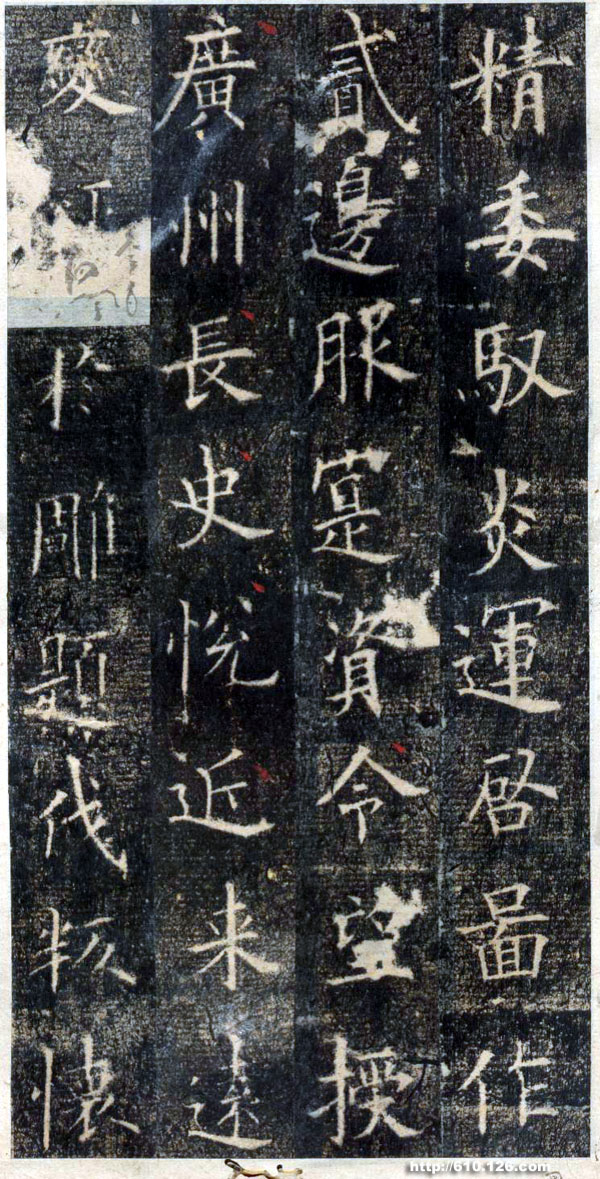 精委馭炎運啓啚作
貳邊服寔資令望授
廣州長史悅近来遠
變 於雕題伐叛懷
http://610.126.com